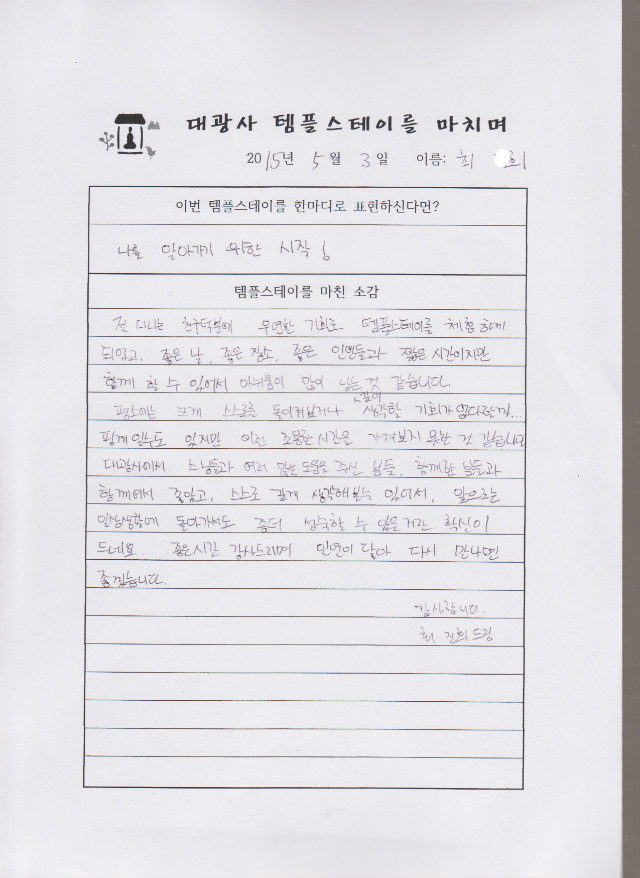 대광사 템플스테이를 마치며
2015년 5월 3일 이름: 최 희
이번 템플스테이를 한마디로 표현하신다면?
나를 알아가기 위한 시작!
템플스테이를 마친 소감
절 다니는 친구덕분에 우연한 기회로 템플스테이를 체험하게
되었고, 좋은 날, 좋은 장소, 좋은 인연들과 짧은 시간이지만
함께 할 수 있어서 아쉬움이 많이 남는 것 같습니다.
평소에는 크게 스스로를 돌이켜보거나 깊이 생각할 기회가 없다할까...
핑계일수도 있지만 이런 조용한 시간은 가져보지 못한 것 같습니다
대광사에서 스님들과 여러 많은 도움을 주신 분들, 함께한 분들과
함께해서 좋았고, 스스로 깊게 생각해볼수 있어서, 앞으로는
일상생활에 돌아가서도 좀더 성숙할 수 있을거란 확신이
드네요. 좋은시간 감사드리며 인연이 닿아 다시 만나면
좋겠습니다.
감사합니다.
최 드림